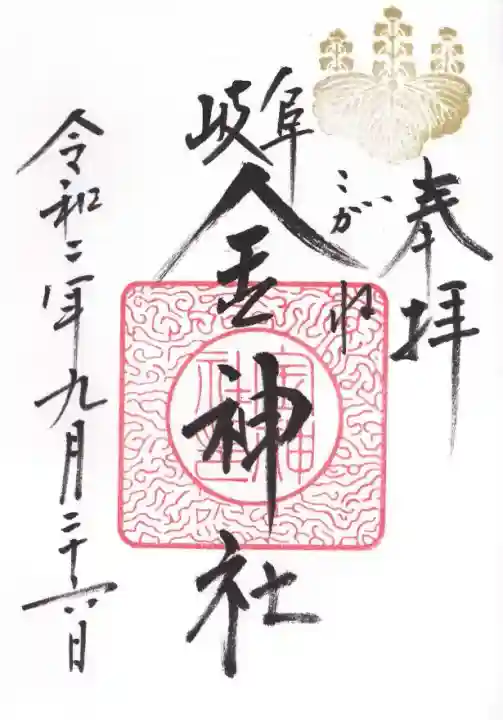 奉拝
岐阜
こがね
金神社
令和二年九月二十六日